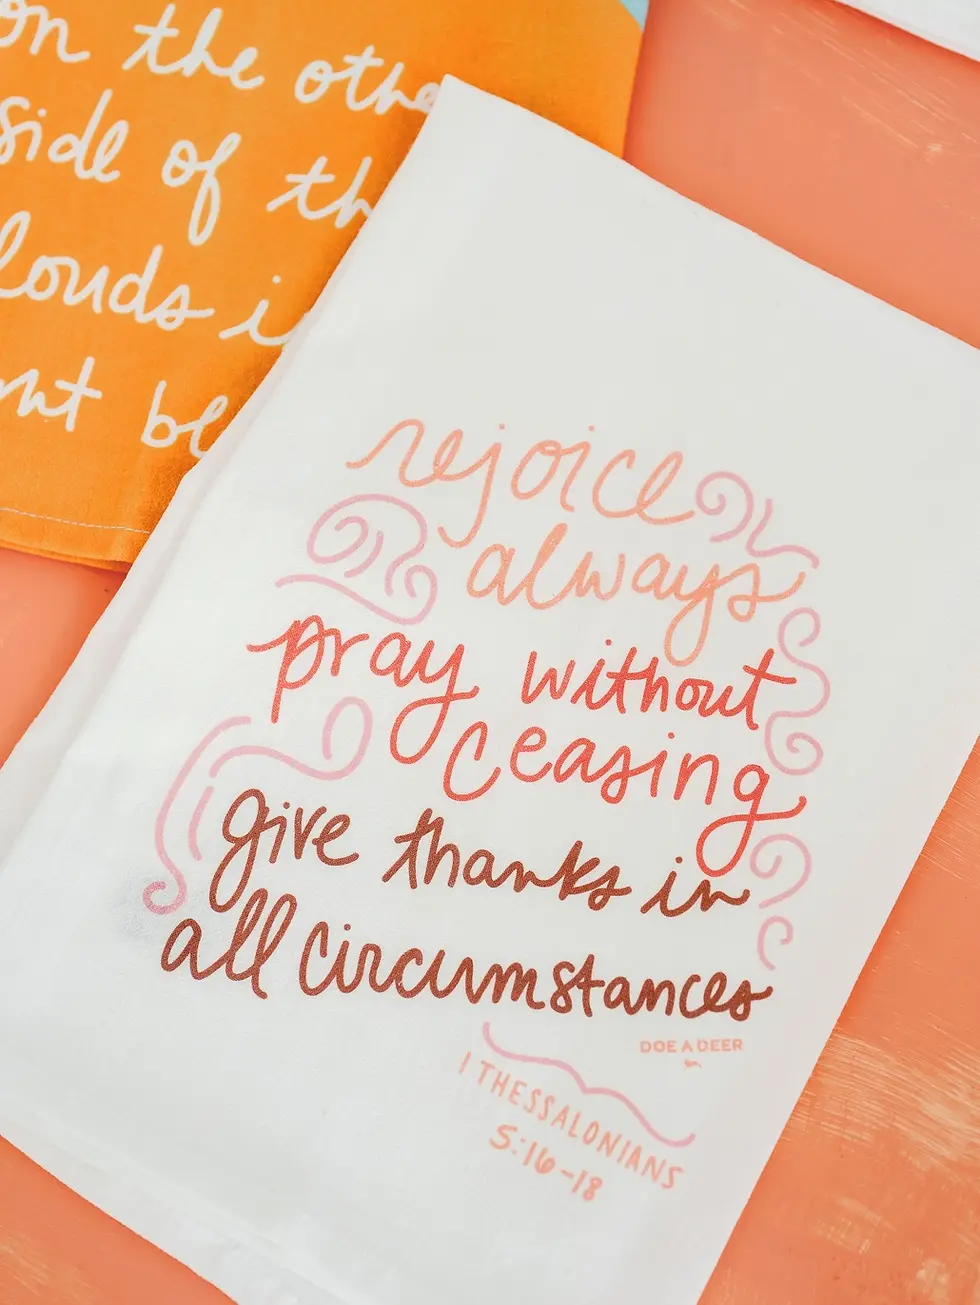 on the othe
side of th
louds i
nt be
rejoice
always
pray without
ceasing
give thanks in
all circumstances
DOE A DEER
1 THESSALONIANS
5:16-18